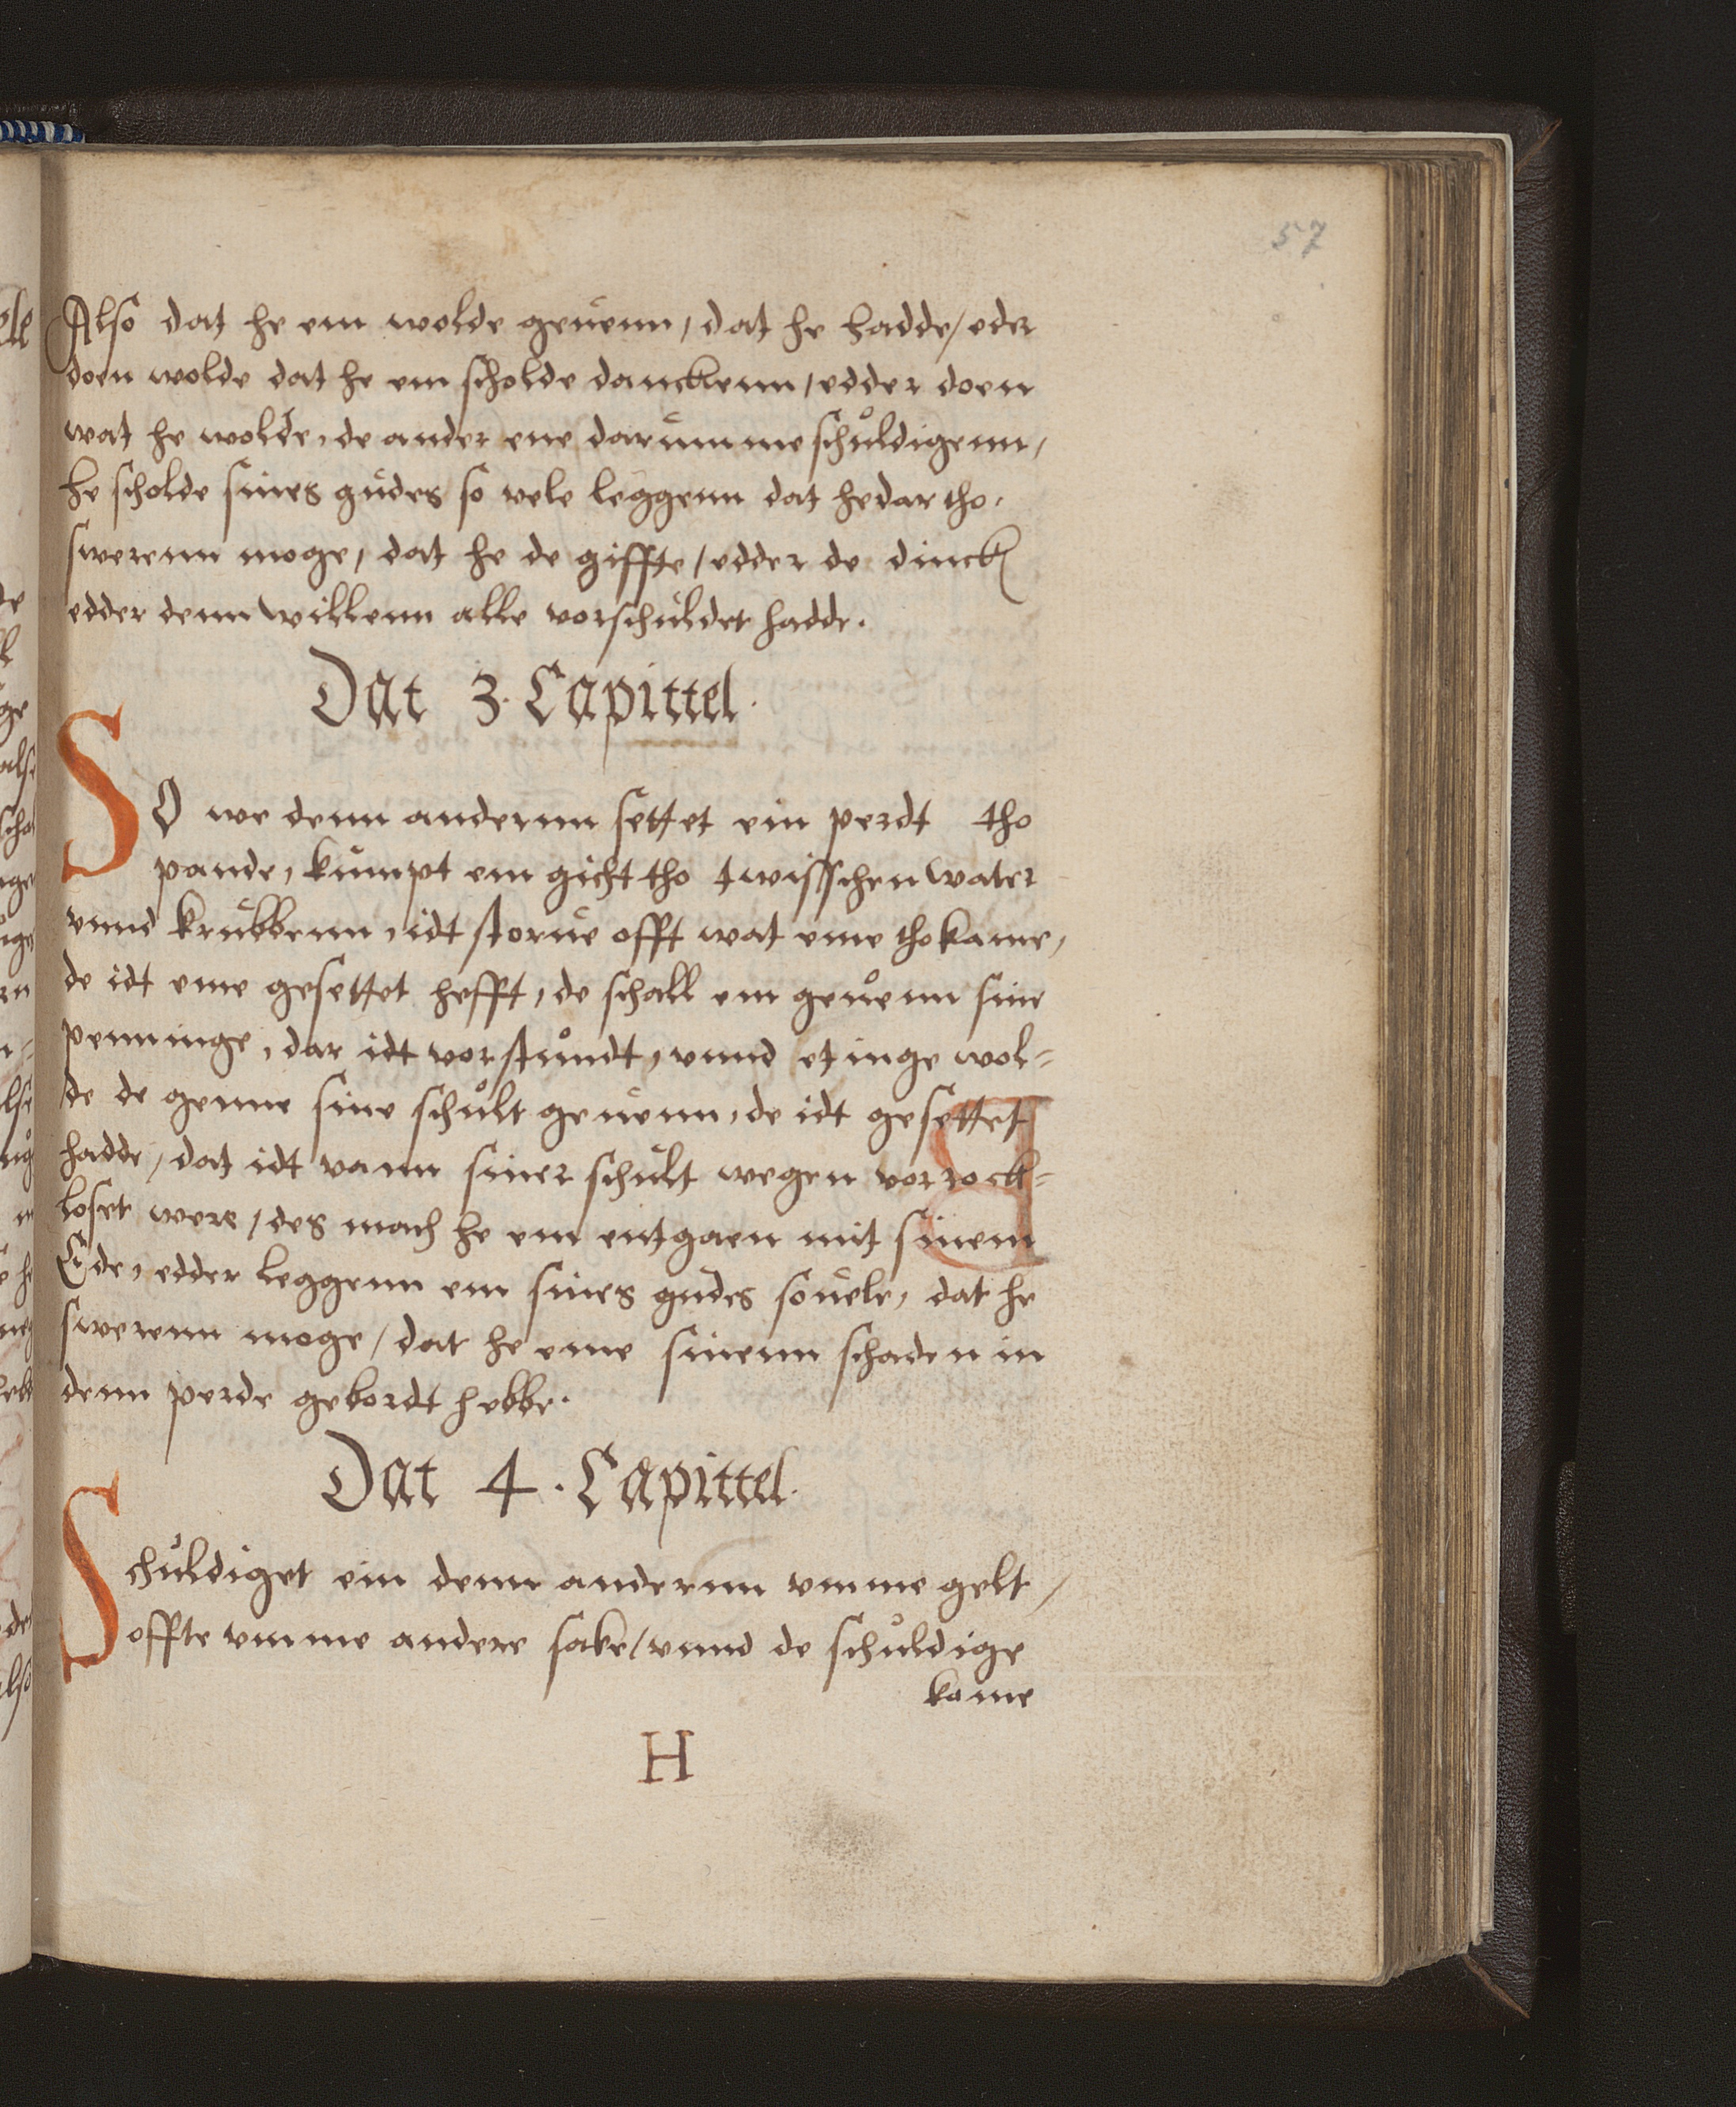 57
Also dat he em wolde geuenn, dat he hadde, eder
doen wolde dat he em scholde danckenn, edder doen
wat he wolde, de ander ene darumme schuldigenn,
he scholde sines gudes so vele leggenn dat he dar tho,
swerenn moge, dat he de giffte, edder de dinck
edder denn willenn alle vorschuldet hadde.
Dat 3. Capittel.
SO we denn andernn settet ein perdt tho
pande, kumpt em gicht tho twisschen water
vnnd krubbenn, idt storue offt wat eme tho kame,
de idt eme gesettet hefft, de schall em geuenn sine
penninge, dar idt vorstundt, vnnd et inge wol=
de de genne sine schult geuenn, de idt gesettet
hadde, dat idt vann siner schult wegen vorrock=
loset were, des mach he em entgaen mit sinem
Ede, edder leggenn em sines gudes souele, dat he
swerenn moge, dat he eme sinenn schaden in
denn perde gebordt hebbe.
Dat 4. Capittel.
Schuldiget ein denn andernn vmme gelt,
offte vmme andere sake, vnnd de schuldige
kame
H